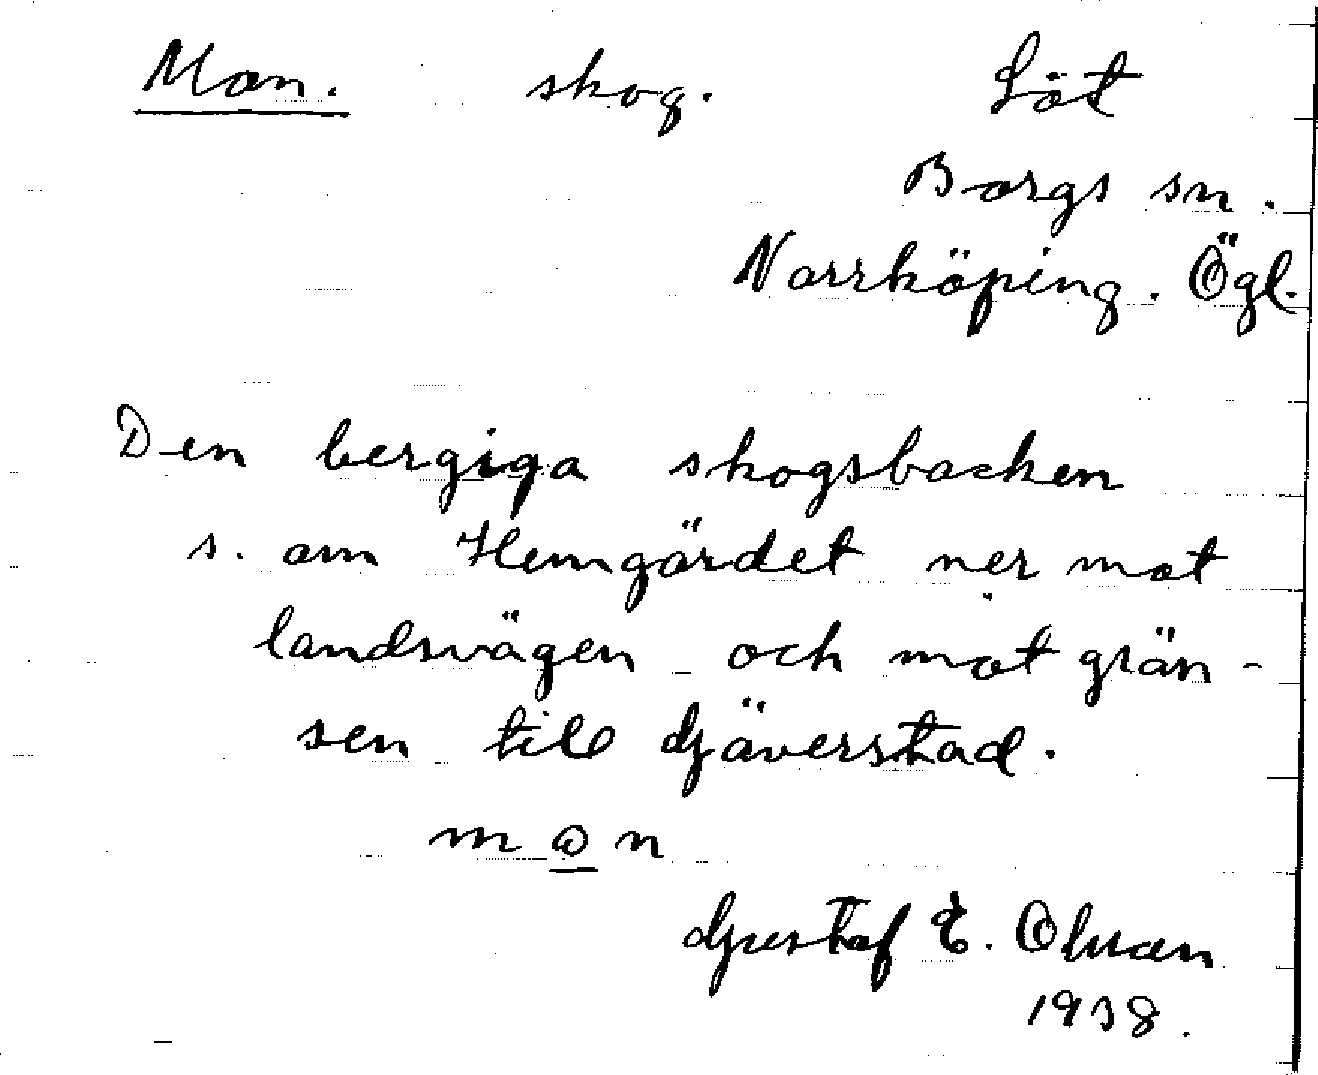 Mon. skog. Löt
Borgs sn.
Norrköping. Ögl.
Den bergiga skogsbacken
s. om Hemgärdet ner mot
landsvägen och mot grän-
sen till Gäverstad.
mon
Gustaf E. Olsson
1938.